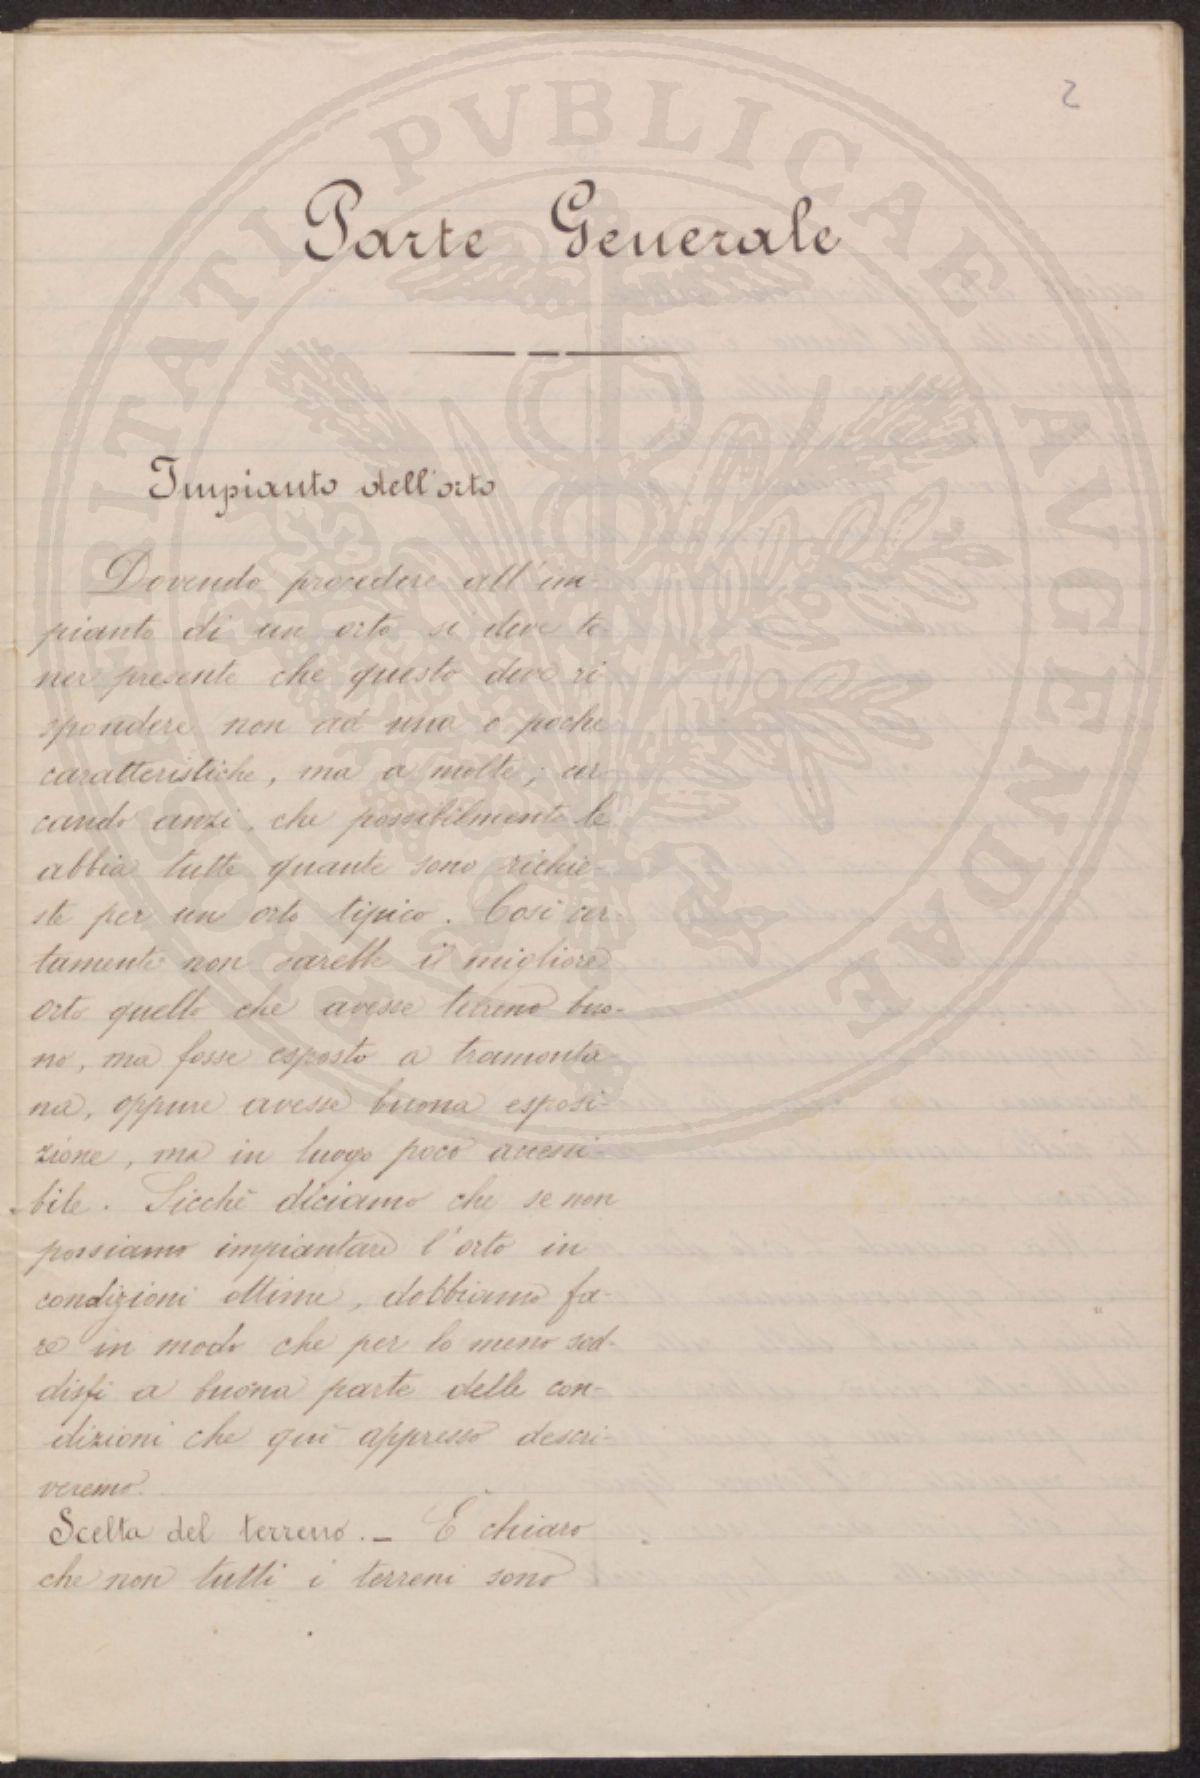 2
Parte Generale
Impianto dell'orto
Dovendo procedere all'im-
pianto di un orto si deve te-
ner presente che questo deve ri-
spondere non ad una o poche
caratteristiche, ma a molte; cer-
cando anzi, che possibilmente le
abbia tutte quante sono richie-
ste per un orto tipico. Così cer-
tamente non sarebbe il migliore
orto quello che avesse terreno buo-
no, ma fosse esposto a tramonta
na, oppure avesse buona esposi-
zione, ma in luogo poco accessi-
bile. Sicchè diciamo che se non
possiamo impiantare l'orto in
condizioni ottime, dobbiamo fa-
re in modo che per lo meno sod-
disfi a buona parte delle con-
dizioni che qui appresso descri-
veremo.
Scelta del terreno. — È chiaro
che non tutti i terreni sono
PVBLICAE AVGENDAE